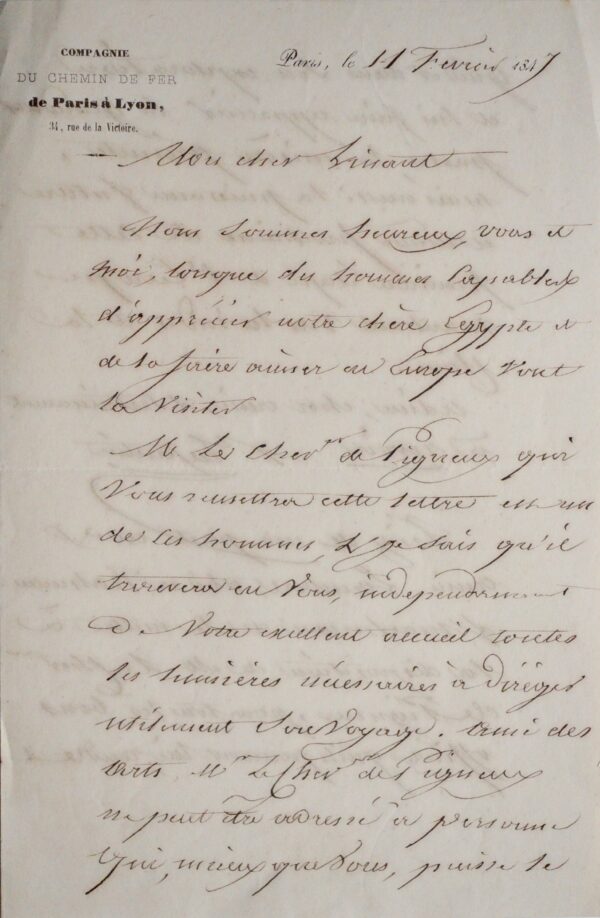 COMPAGNIE
DU CHEMIN DE FER
de Paris à Lyon,
34, rue de la Victoire.
Paris, le 11 Février 1847
Mon cher Linant
Nous sommes heureux, vous et
moi, lorsque des hommes capables
d'apprécier notre chère Egypte et
de la faire aimer en Europe vont
la visiter
Mr Le Chevr de Pigneux qui
vous remettra cette lettre est un
de ces hommes, & je sais qu'il
trouvera en vous, independamment
de votre excellent accueil toutes
les lumières nécessaires à diriger
utilement son voyage. Ami des
arts, Mr Le Chevr de Pigneux
ne peut être adressé à personne
qui, mieux que vous, puisse le